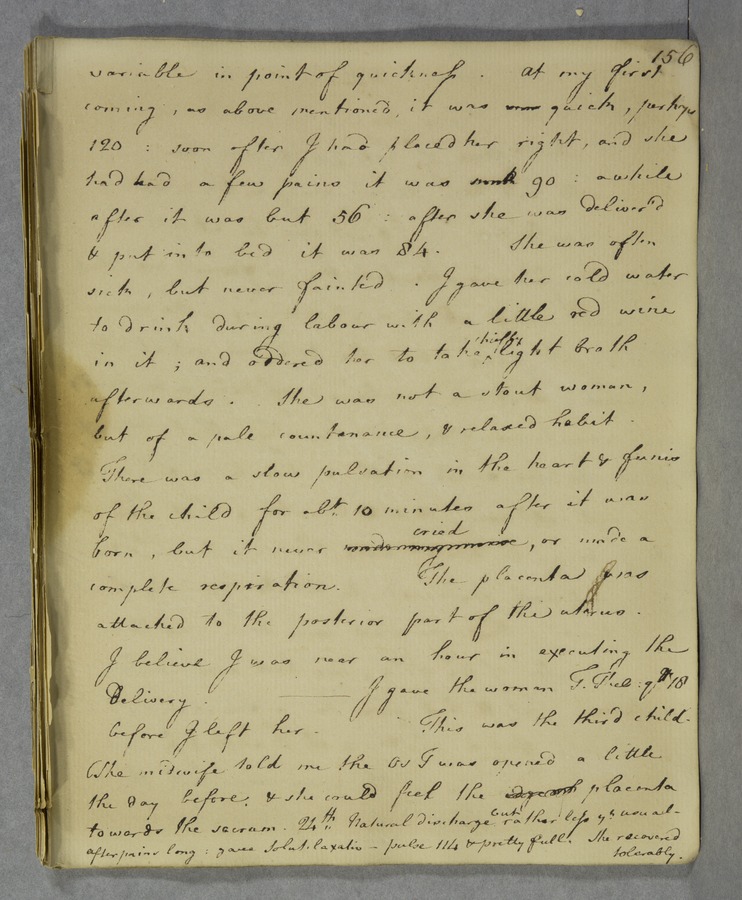 156
variable in point of quickness. At my first
coming, as above mentioned, it was quick, perhaps
120 : soon after I had placed her right, and she
had had a few pains it was 90 : awhile
after it was but 56 : after she was deliver'd
& put into bed it was 84. She was often
sick, but never fainted. I gave her cold water
to drink during labour with a little red wine
in it ; and ordered her to take chiefly light broth
afterwards. She was not a stout woman,
but of a pale countenance, & relaxed habit.
There was a slow pulsation in the heart & funis
of the child for abt. 10 minutes after it was
born, but it never cried, or made a
complete respiration. The placenta was
attached to the posterior part of the uterus.
I believe I was near an hour in executing the
Delivery. I gave the woman T. Theb: gtt 18
before I left her. This was the third child.
The midwife told me the Os T was opened a little
the day before, & she could feel the placenta
towards the sacrum. 24th. Natural discharge but rather less yn usual -
afterpains long : gave Solut. laxativ - pulse 114 & pretty full. She recovered
tolerably.